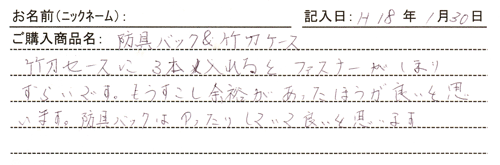 お名前(ニックネーム): 記入日: H18年 1月30日
ご購入商品名: 防具バック&竹刀ケース
竹刀セースに 3本入れると ファスナーがしまり
ずらいです。もうすこし余裕があったほうが良いと思
います。防具バックはゆったりしていて良いと思います